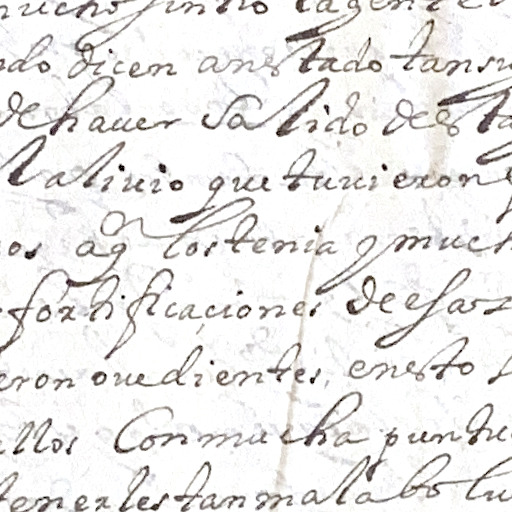 mucho sintio la gente
ndo dicen an estado tan su
de haver Salido desta
l alivio que tuvieron
os aq los tenia y much
fortificaçiones de esas
eron ovedientes, en esto
ellos Con mucha puntu
tenerles tan mala bolu